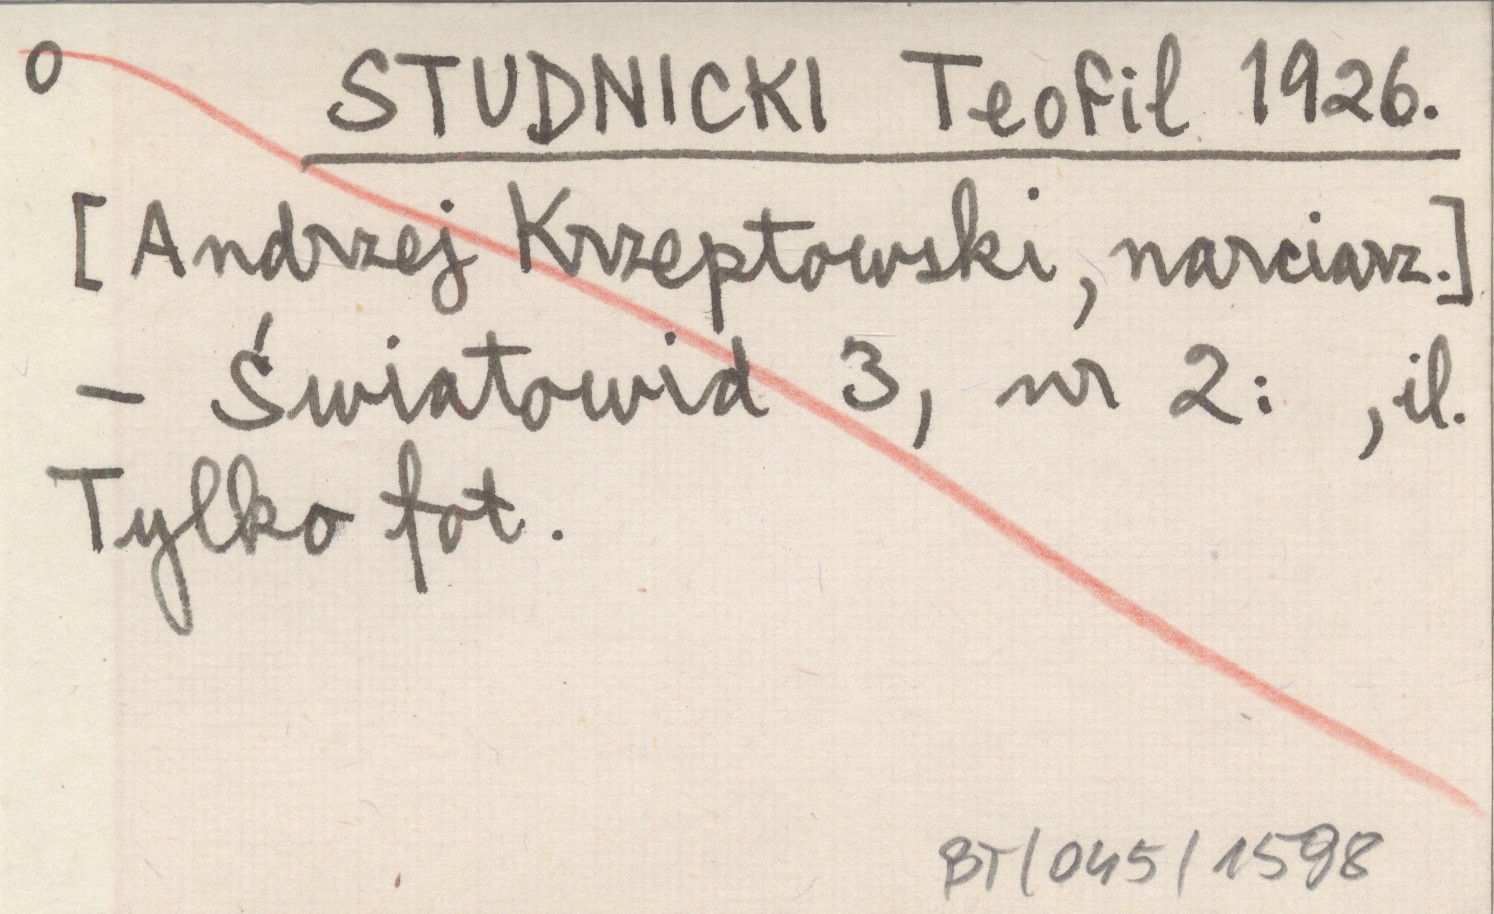 o
STUDNICKI Teofil 1926.
[Andrzej Krzeptowski, narciarz.]
- Światowid 3, nr 2: , il.
Tylko fot.
BT/045/1598